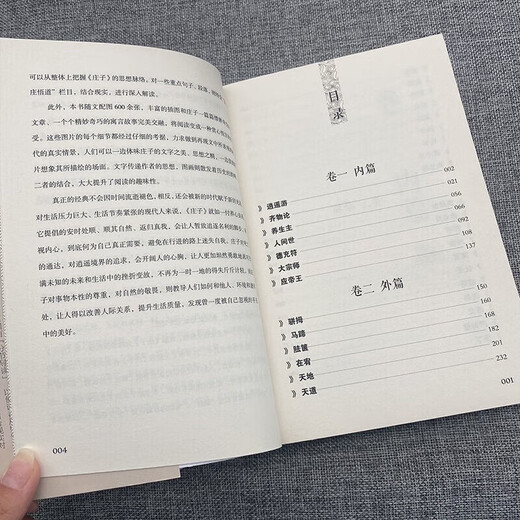 可以从整体上把握《庄子》的思想脉络,对一些重点句子、段落,
庄悟道”栏目,结合现实,进行深入解读。
此外,本书随文配图 600 余张,丰富的插图和庄子一篇篇
文章、一个个精妙奇巧的寓言故事完美交融,将阅读变成一种赏心
受。这些图片的每个细节都经过仔细的考据,力求做到再现文中所
代的真实情景,人们可以一边体味庄子的文字之美、思想之精,一边
片想象其所描绘的场面。文字传递作者的思想,图画则散发着历史的
二者的结合,大大提升了阅读的趣味性。
真正的经典不会因时间流逝褪色,相反,还会被新的时代赋予新
对生活压力巨大,生活节奏紧张的现代人来说,《庄子》就如一付
它提倡的安时处顺、顺其自然、返归真我,会让人暂放追逐名利的
视内心,到底何为自己真正需要,避免在行进的路上迷失自我。庄子
的通达,对逍遥境界的追求,会开阔人的心胸,让人更加积极地
满未知的未来和生活中的挫折变故,不再为一时一地的得失斤斤计较
子对事物本性的尊重,对自然的敬畏,则教导人们如何和他人、环境和
处,让人得以改善人际关系,提升生活质量,发现曾一度被自己忽视的
中的美好。
004
目录
卷一 内篇
》逍遥游 002
》齐物论 021
》养生主 056
》人间世 067
》德充符 092
》大宗师 106
》应帝王 137
卷二 外篇
》骈拇 150
》马蹄 160
》胠箧 168
》在宥 182
》天地 201
》天道 232
001